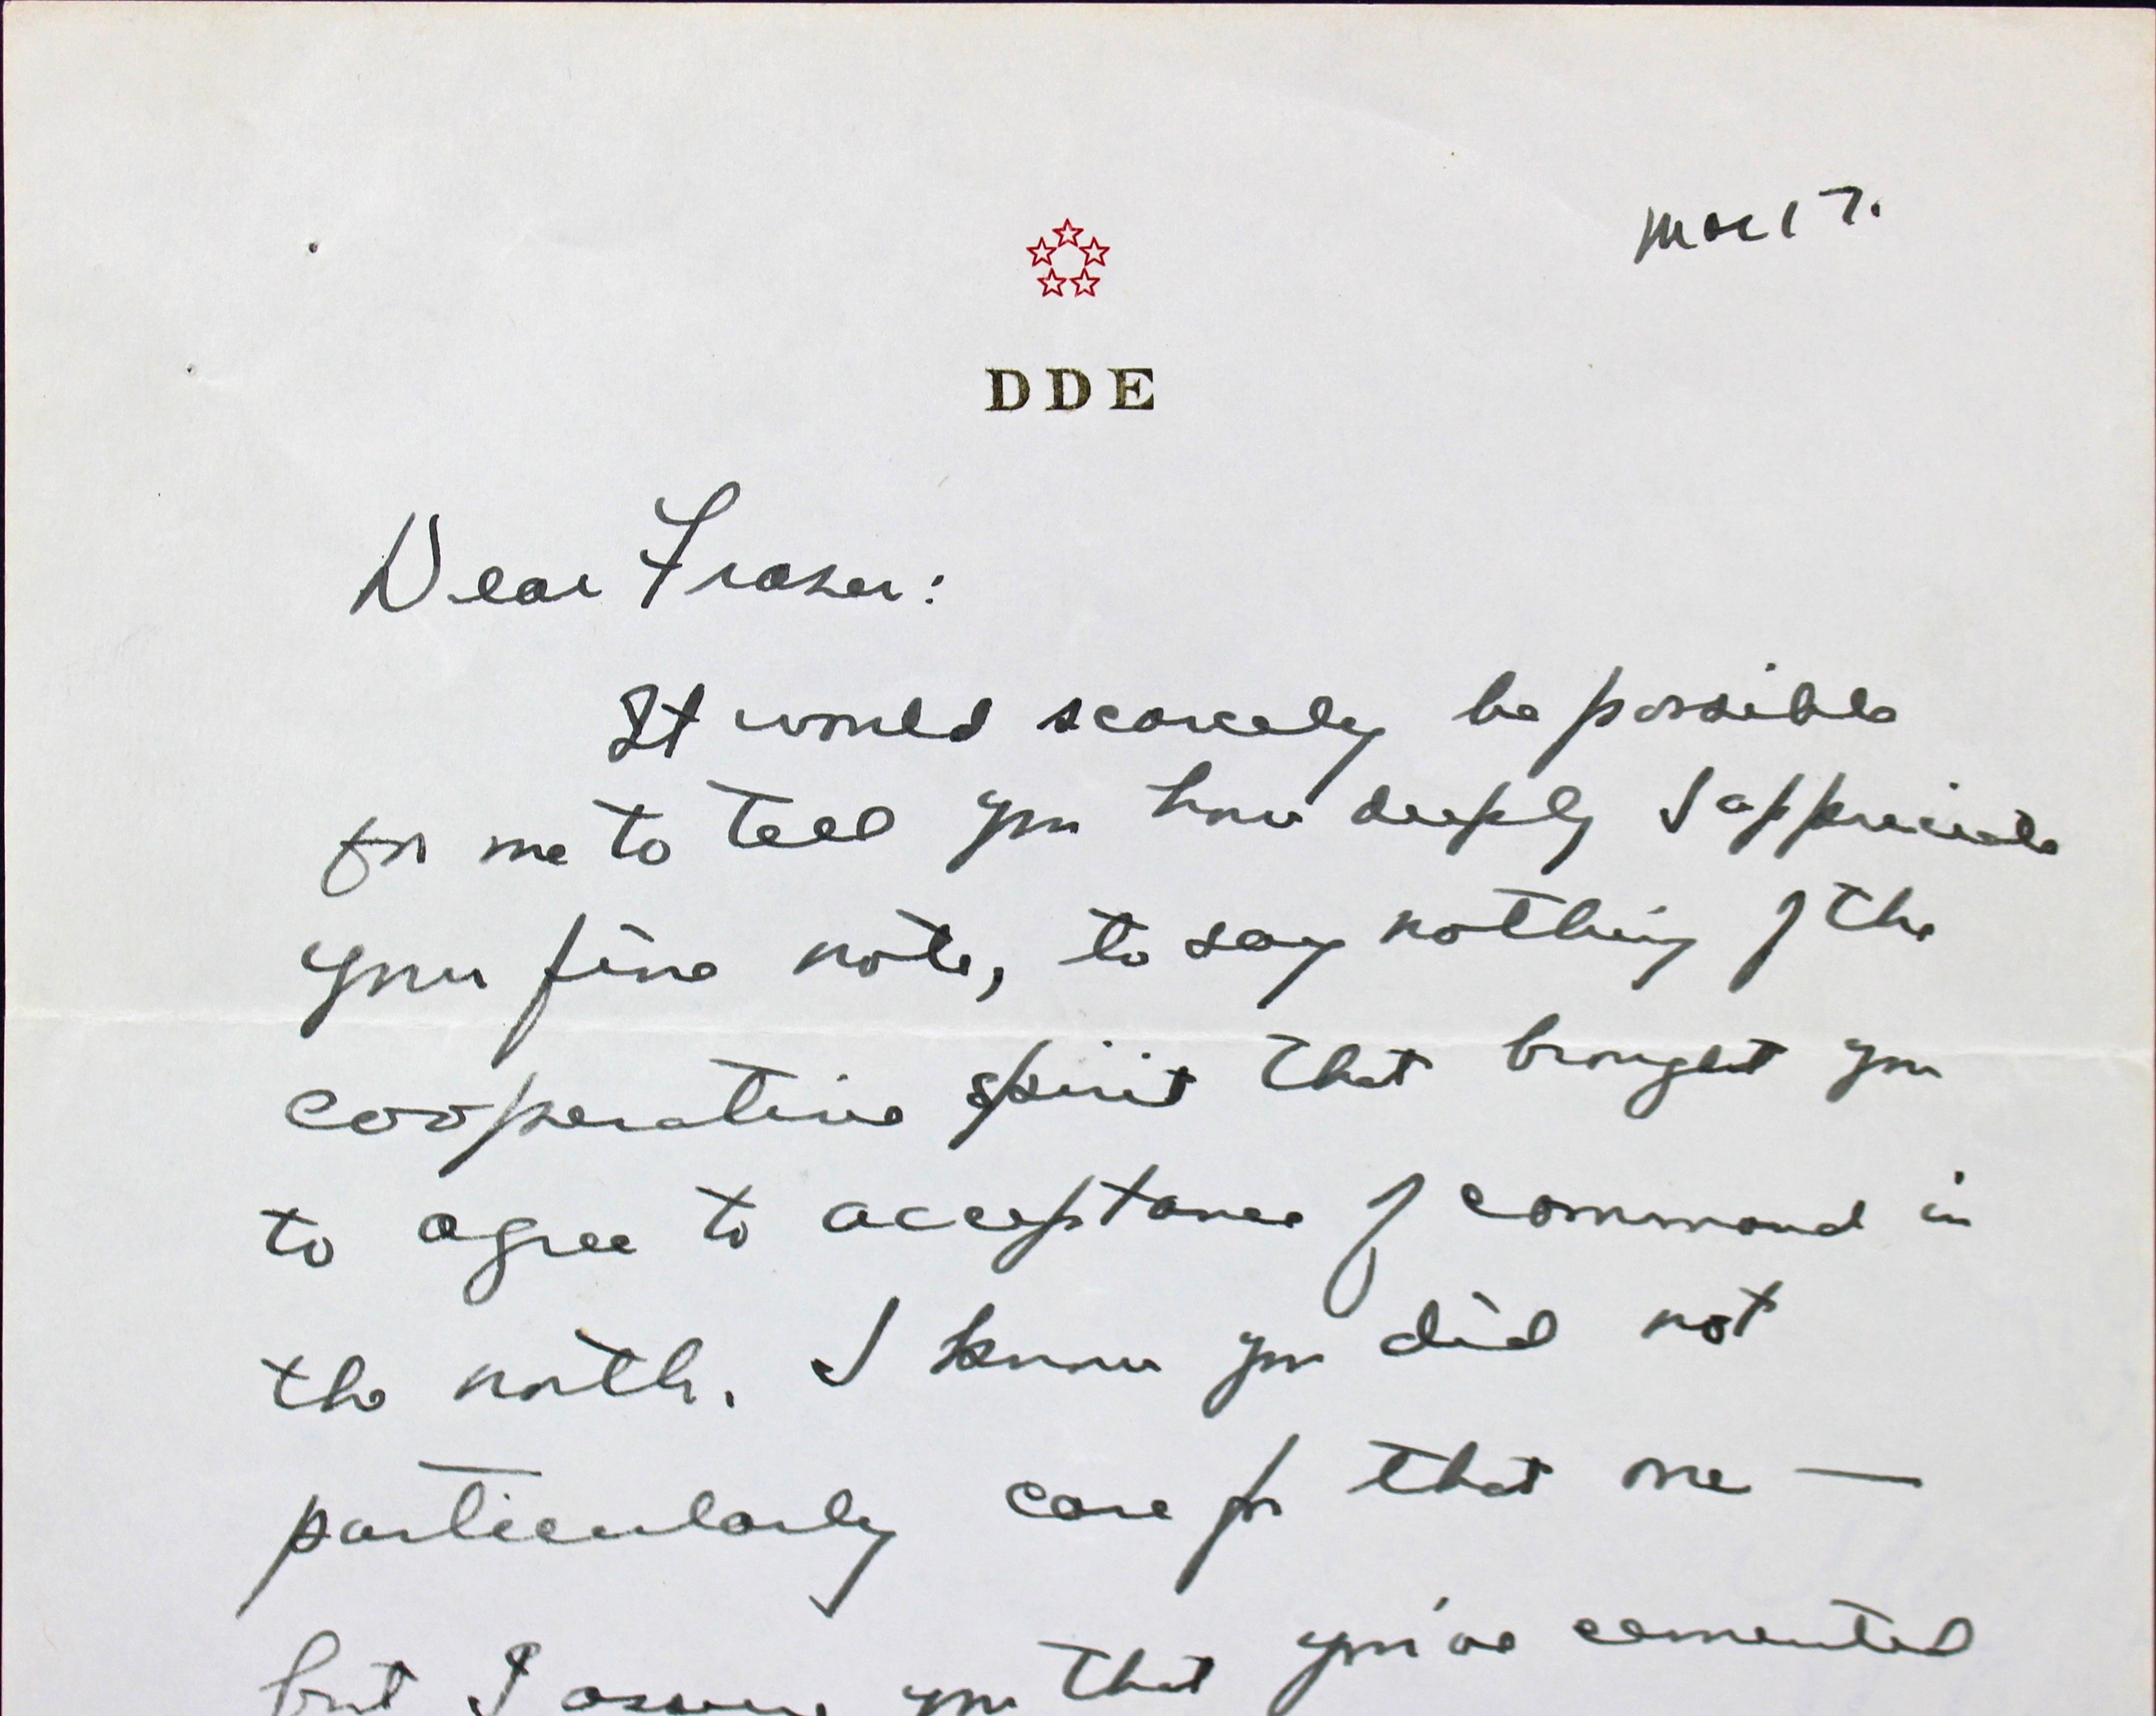 Mar 17.
DDE
Dear Fraser:
It would scarcely be possible
for me to tell you how deeply I appreciate
your fine note, to say nothing of the
cooperative spirit that brought you
to agree to acceptance of command in
the north. I know you did not
particularly care for that one —
but I assure you that you've cemented